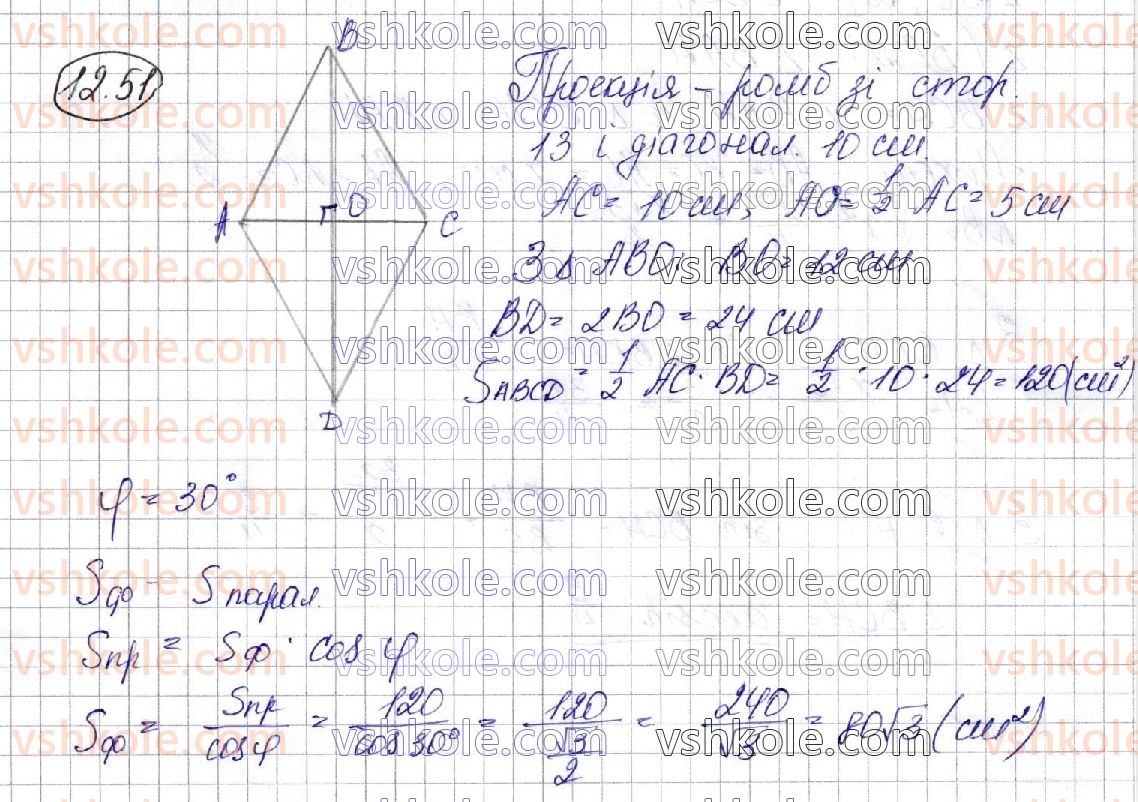 12.51
B
A
O
C
D
Проекція – ромб зі стор.
13 і діагонал. 10 см.
AC = 10 см, AO = 1/2 AC = 5 см
З Δ ABO: BO = 12 см
BD = 2BO = 24 см
SABCD = 1/2 AC · BD = 1/2 · 10 · 24 = 120 (см²)
φ = 30°
Sф – Sпарал.
Sпр = Sф · cos φ
Sф = Sпр/cosφ = 120/cos30° = 120/(√3/2) = 240/√3 = 80√3 (см²)
vshkole.com